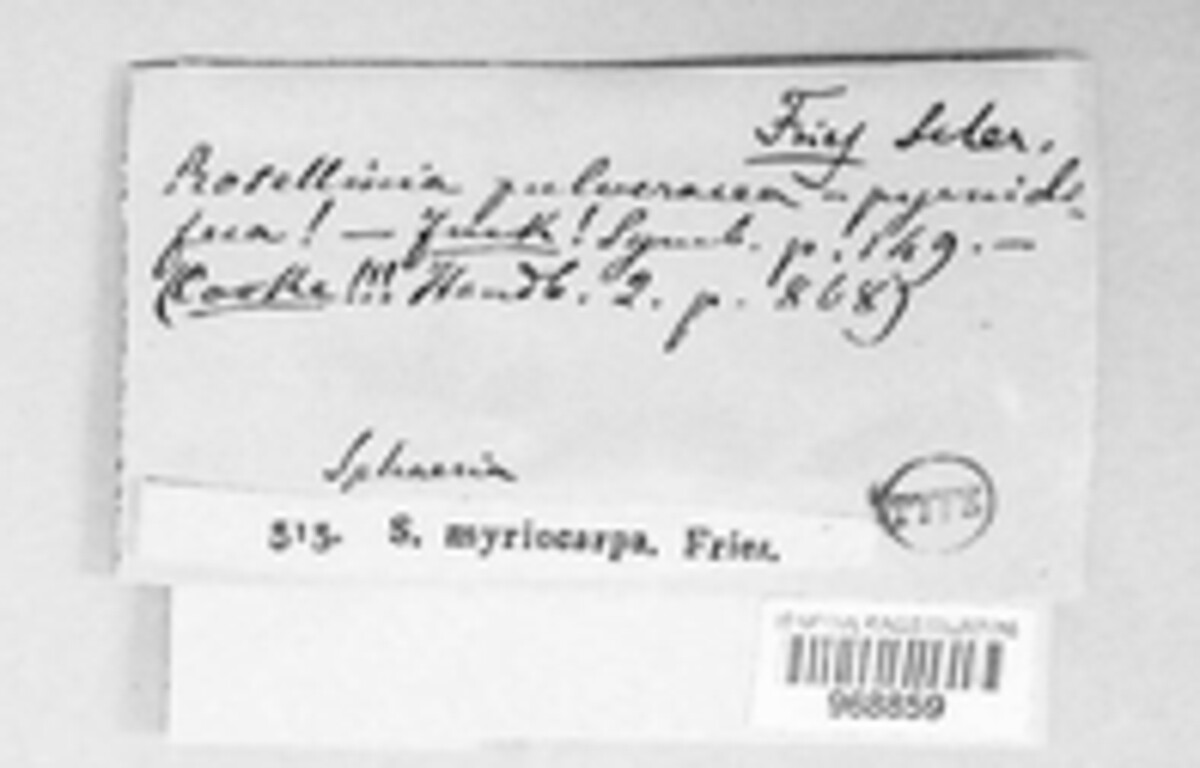 Fries Scler.
Rosellinia pulveracea - pyrnid-
fua! — Fuck! Symb. p. 149. —
(Cooke!!! Handb. 2. p. 868)
Sphaeria
515. S. myriocarpa. Fries.
968859